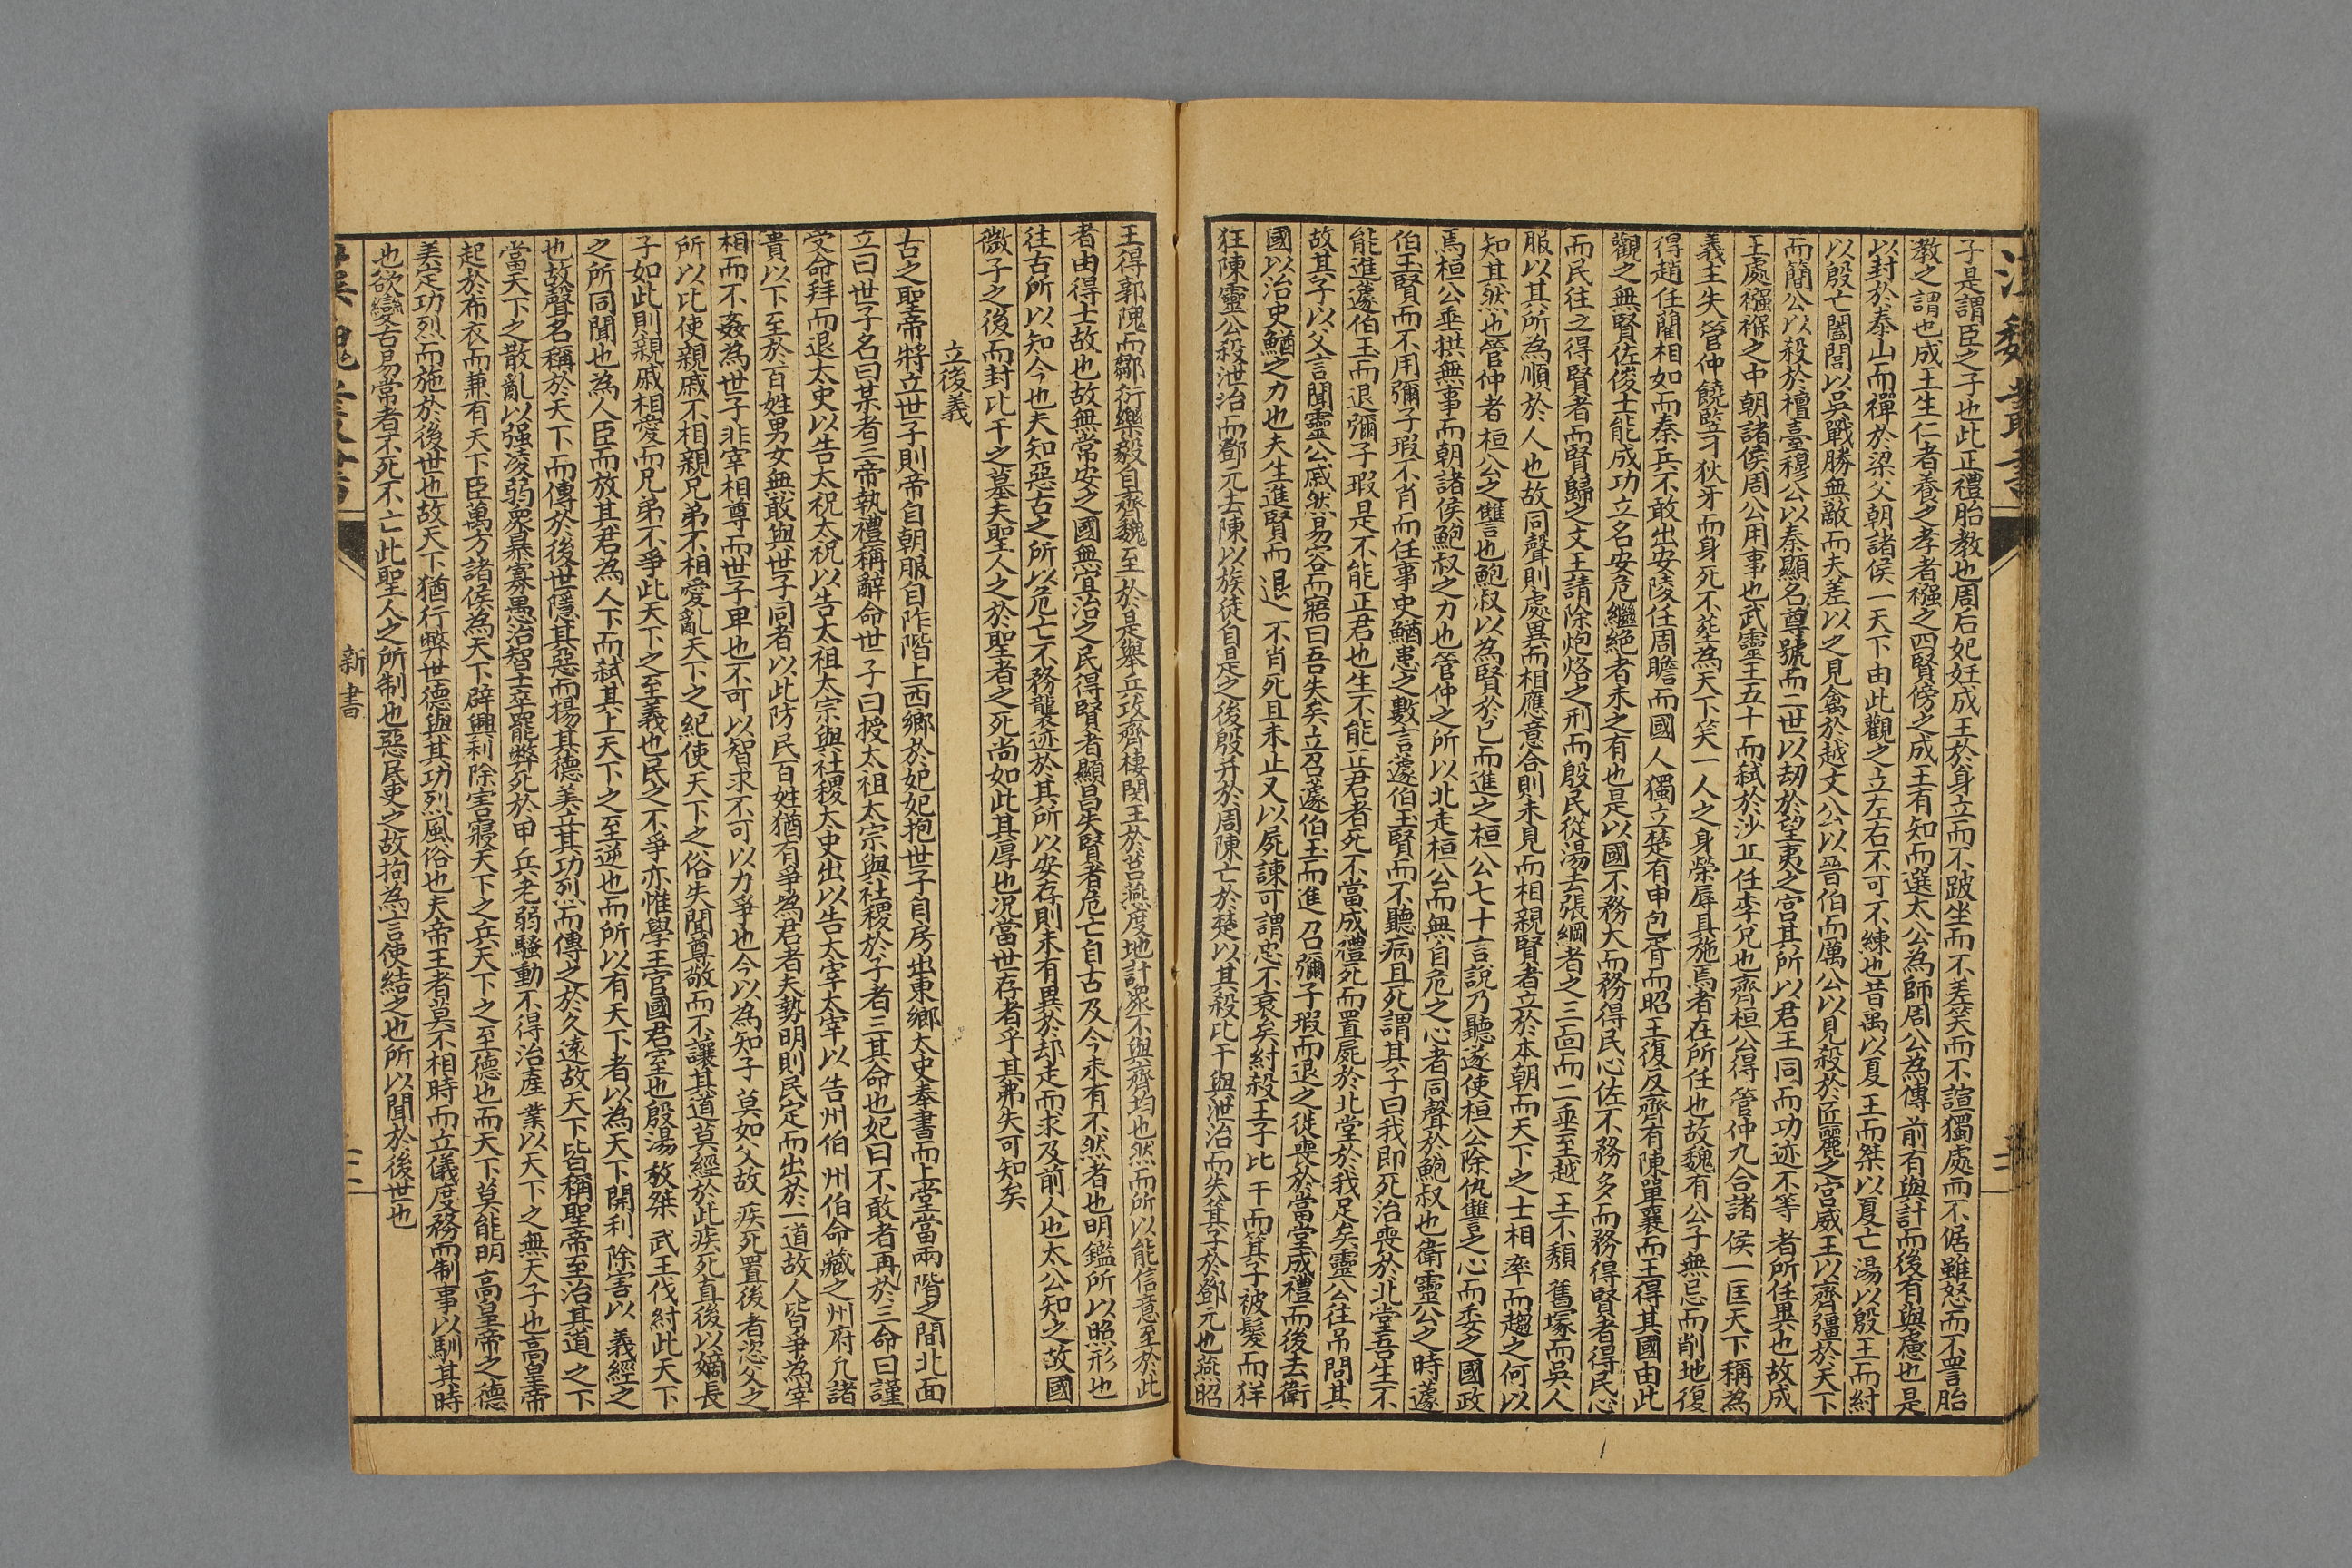 子是謂臣之子也此正禮胎教也周后妃妊成王於身立而不跛坐而不差笑而不諠獨處而不倨雖怒而不詈胎
教之謂也成王生仁者養之孝者襁之四賢傍之成王有知而選太公為師周公為傅前有與計而後有與慮也是
以封於泰山而禪於梁父朝諸侯一天下由此觀之立左右不可不練也昔禹以夏王而桀以夏亡湯以殷王而紂
以殷亡闔閭以吳戰勝無敵而夫差以之見禽於越文公以晉伯而厲公以見殺於匠麗之宮威王以齊彊於天下
而簡公以殺於檀臺穆公以秦顯名尊號而二世以劫於望夷之宮其所以君王同而功迹不等者所任異也故成
王處襁褓之中朝諸侯周公用事也武靈王五十而弒於沙丘任李兌也齊桓公得管仲九合諸侯一匡天下稱為
義主失管仲饒豎刁狄牙而身死不葬為天下笑一人之身榮辱具施焉者在所任也故魏有公子無忌而削地復
得趙任藺相如而秦兵不敢出安陵任周瞻而國人獨立楚有申包胥而昭王復反齊有陳單襄而王得其國由此
觀之無賢佐俊士能成功立名安危繼絕者未之有也是以國不務大而務得民心佐不務多而務得賢者得民心
而民往之得賢者而賢歸之文王請除炮烙之刑而殷民從湯去張網者之三面而二垂至越王不頹舊塚而吳人
服以其所為順於人也故同聲則處異而相應意合則未見而相親賢者立於本朝而天下之士相率而趨之何以
知其然也管仲者桓公之讐也鮑叔以為賢於己而進之桓公七十言說乃聽遂使桓公除仇讐之心而委之國政
焉桓公垂拱無事而朝諸侯鮑叔之力也管仲之所以北走桓公而無自危之心者同聲於鮑叔也衛靈公之時蘧
伯玉賢而不用彌子瑕不肖而任事史鰌患之數言蘧伯玉賢而不聽病且死謂其子曰我即死治喪於北堂吾生不
能進蘧伯玉而退彌子瑕是不能正君也生不能正君者死不當成禮死而置屍於北堂於我足矣靈公往吊問其
故其子以父言聞靈公戚然易容而寤曰吾失矣立召蘧伯玉而進之召彌子瑕而退之徙喪於當堂成禮而後去衛
國以治史鰌之力也夫生進賢而退不肖死且未止又以屍諫可謂忠不衰矣紂殺王子比干而箕子被髮而佯
狂陳靈公殺泄冶而鄧元去陳以族徒自是之後殷并於周陳亡於楚以其殺比干與泄冶而失箕子於鄧元也燕昭
王得郭隗而鄒衍樂毅自齊魏至於是舉兵攻齊棲閔王於莒燕度地計衆不與齊均也然而所以能信意至於此
者由得士故也故無常安之國無宜治之民得賢者顯昌失賢者危亡自古及今未有不然者也明鑑所以照形也
往古所以知今也夫知惡古之所以危亡不務襲迹於其所以安存則未有異於却走而求及前人也太公知之故國
微子之後而封比干之墓夫聖人之於聖者之死尚如此其厚也况當世存者乎其弗失可知矣
立後義
古之聖帝將立世子則帝自朝服自阼階上西鄉於妃妃抱世子自房出東鄉太史奉書而上堂當兩階之間北面
立曰世子名曰某者三帝執禮稱辭命世子曰授太祖太宗與社稷於子者三其命也妃曰不敢者再於三命曰謹
受命拜而退太史以告太祝太祝以告太祖太宗與社稷太史出以告太宰太宰以告州伯州伯命藏之州府凡諸
貴以下至於百姓男女無敢與世子同者以此防民百姓猶有爭為君者夫勢明則民定而出於一道故人皆爭為宰
相而不姦為世子非宰相尊而世子卑也不可以智求不可以力爭也今以為知子莫如父故疾死置後者恣父之
所以比使親戚不相親兄弟不相愛亂天下之紀使天下之俗失閒尊敬而不讓其道莫經於此疾死直後以嫡長
子如此則親戚相愛而兄弟不爭此天下之至義也民之不爭亦惟學王官國君室也殷湯放桀武王伐紂此天下
之所同聞也為人臣而放其君為人下而弒其上天下之至逆也而所以有天下者以為天下開利除害以義經之
也故聲名稱於天下而傳於後世隱其惡而揚其德美立其功烈而傳之於久遠故天下皆稱聖帝至治其道之下
當天下之散亂以强凌弱衆暴寡愚治智士卒罷弊死於甲兵老弱騷動不得治產業以天下之無天子也高皇帝
起於布衣而兼有天下臣萬方諸侯為天下辟興利除害寢天下之兵天下之至德也而天下莫能明高皇帝之德
美定功烈而施於後世也故天下猶行弊世德與其功烈風俗也夫帝王者莫不相時而立儀度務而制事以馴其時
也欲變古易常者不死不亡此聖人之所制也惡民吏之故拘為言使結之也所以聞於後世也
新書